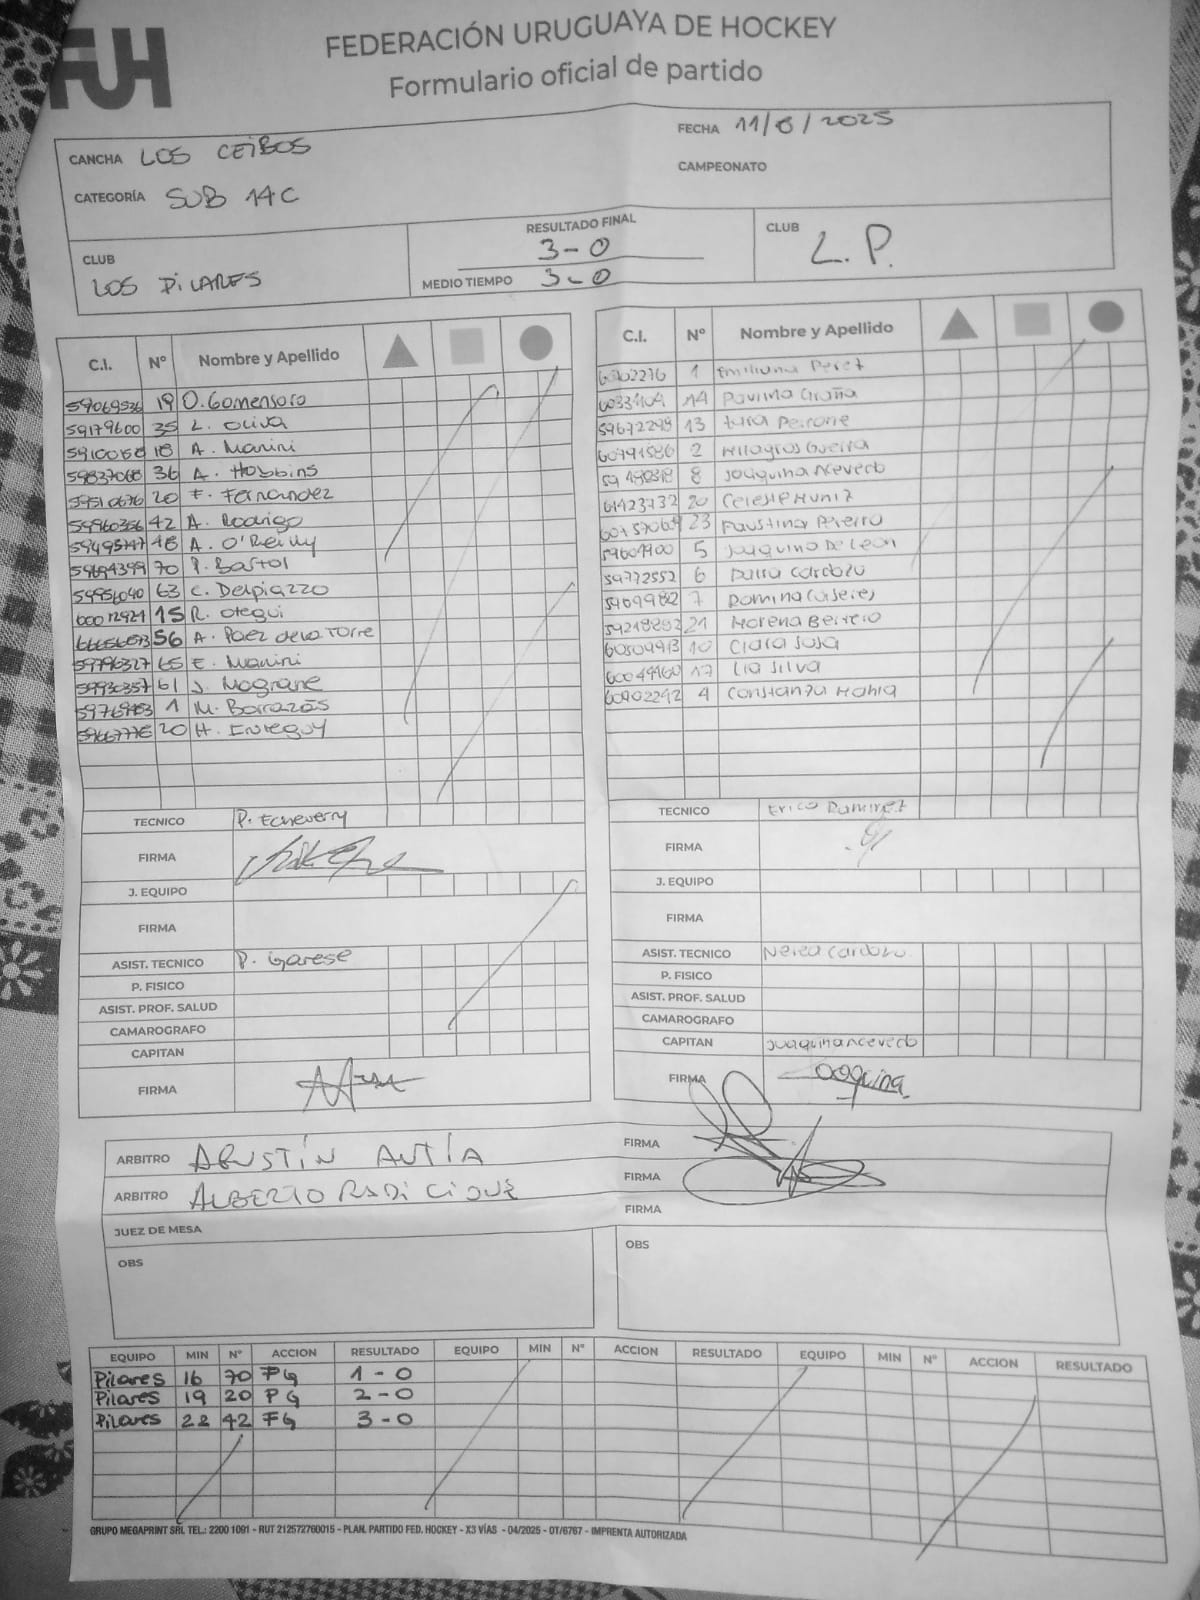 FUH
FEDERACIÓN URUGUAYA DE HOCKEY
Formulario oficial de partido
CANCHA LOS CEIBOS
FECHA 11/8/2025
CATEGORÍA SUB 14C
CAMPEONATO
CLUB LOS PILARES
RESULTADO FINAL 3-0
MEDIO TIEMPO 3-0
CLUB L.P.
C.I. Nº Nombre y Apellido
59069536 19 O. Gomensoro
59179600 35 L. Oliva
18 A. Manini
59837068 36 A. Hobbins
59510676 20 F. Fernandez
59960356 42 A. Rodrigo
48 A. O'Reilly
59694399 70 P. Bastol
59956040 63 C. Delpiazzo
60012921 15 R. Otegui
56 A. Paez de la Torre
59796327 65 E. Manini
59930357 61 J. Mograne
1 M. Barrazás
20 H.
TECNICO P. Echeverry
FIRMA
J. EQUIPO
FIRMA
ASIST. TECNICO P. Garese
P. FISICO
ASIST. PROF. SALUD
CAMAROGRAFO
CAPITAN
FIRMA
C.I. Nº Nombre y Apellido
1 Emiliana Perez
14 Paulina Graña
59672298 13 Peirone
60791586 2 Milagros Guerra
8 Joaquina Acevedo
61423732 20 Celeste Muniz
23 Faustina Pereiro
59601900 5 Joaquina De Leon
59772552 6 Cardozo
7 Romina Caseres
59218892 21 Morena Berreto
60509913 10 Clara Sosa
60049460 17 Lia Silva
60902292 4 Constanza Mahia
TECNICO Erico Ramirez
FIRMA
J. EQUIPO
FIRMA
ASIST. TECNICO Nerea Cardozo
P. FISICO
ASIST. PROF. SALUD
CAMAROGRAFO
CAPITAN Joaquina Acevedo
FIRMA Joaquina
ARBITRO AGUSTÍN AUTÍA FIRMA
ARBITRO ALBERTO FIRMA
JUEZ DE MESA FIRMA
OBS
OBS
EQUIPO MIN Nº ACCION RESULTADO EQUIPO MIN Nº ACCION RESULTADO EQUIPO MIN Nº ACCION RESULTADO
Pilares 16 70 FG 1-0
Pilares 19 20 FG 2-0
Pilares 22 42 FG 3-0
GRUPO MEGAPRINT SRL TEL.: 2200 1091 - RUT 212572760015 - PLAN. PARTIDO FED. HOCKEY - X3 VÍAS - 04/2025 - OT/6767 - IMPRENTA AUTORIZADA